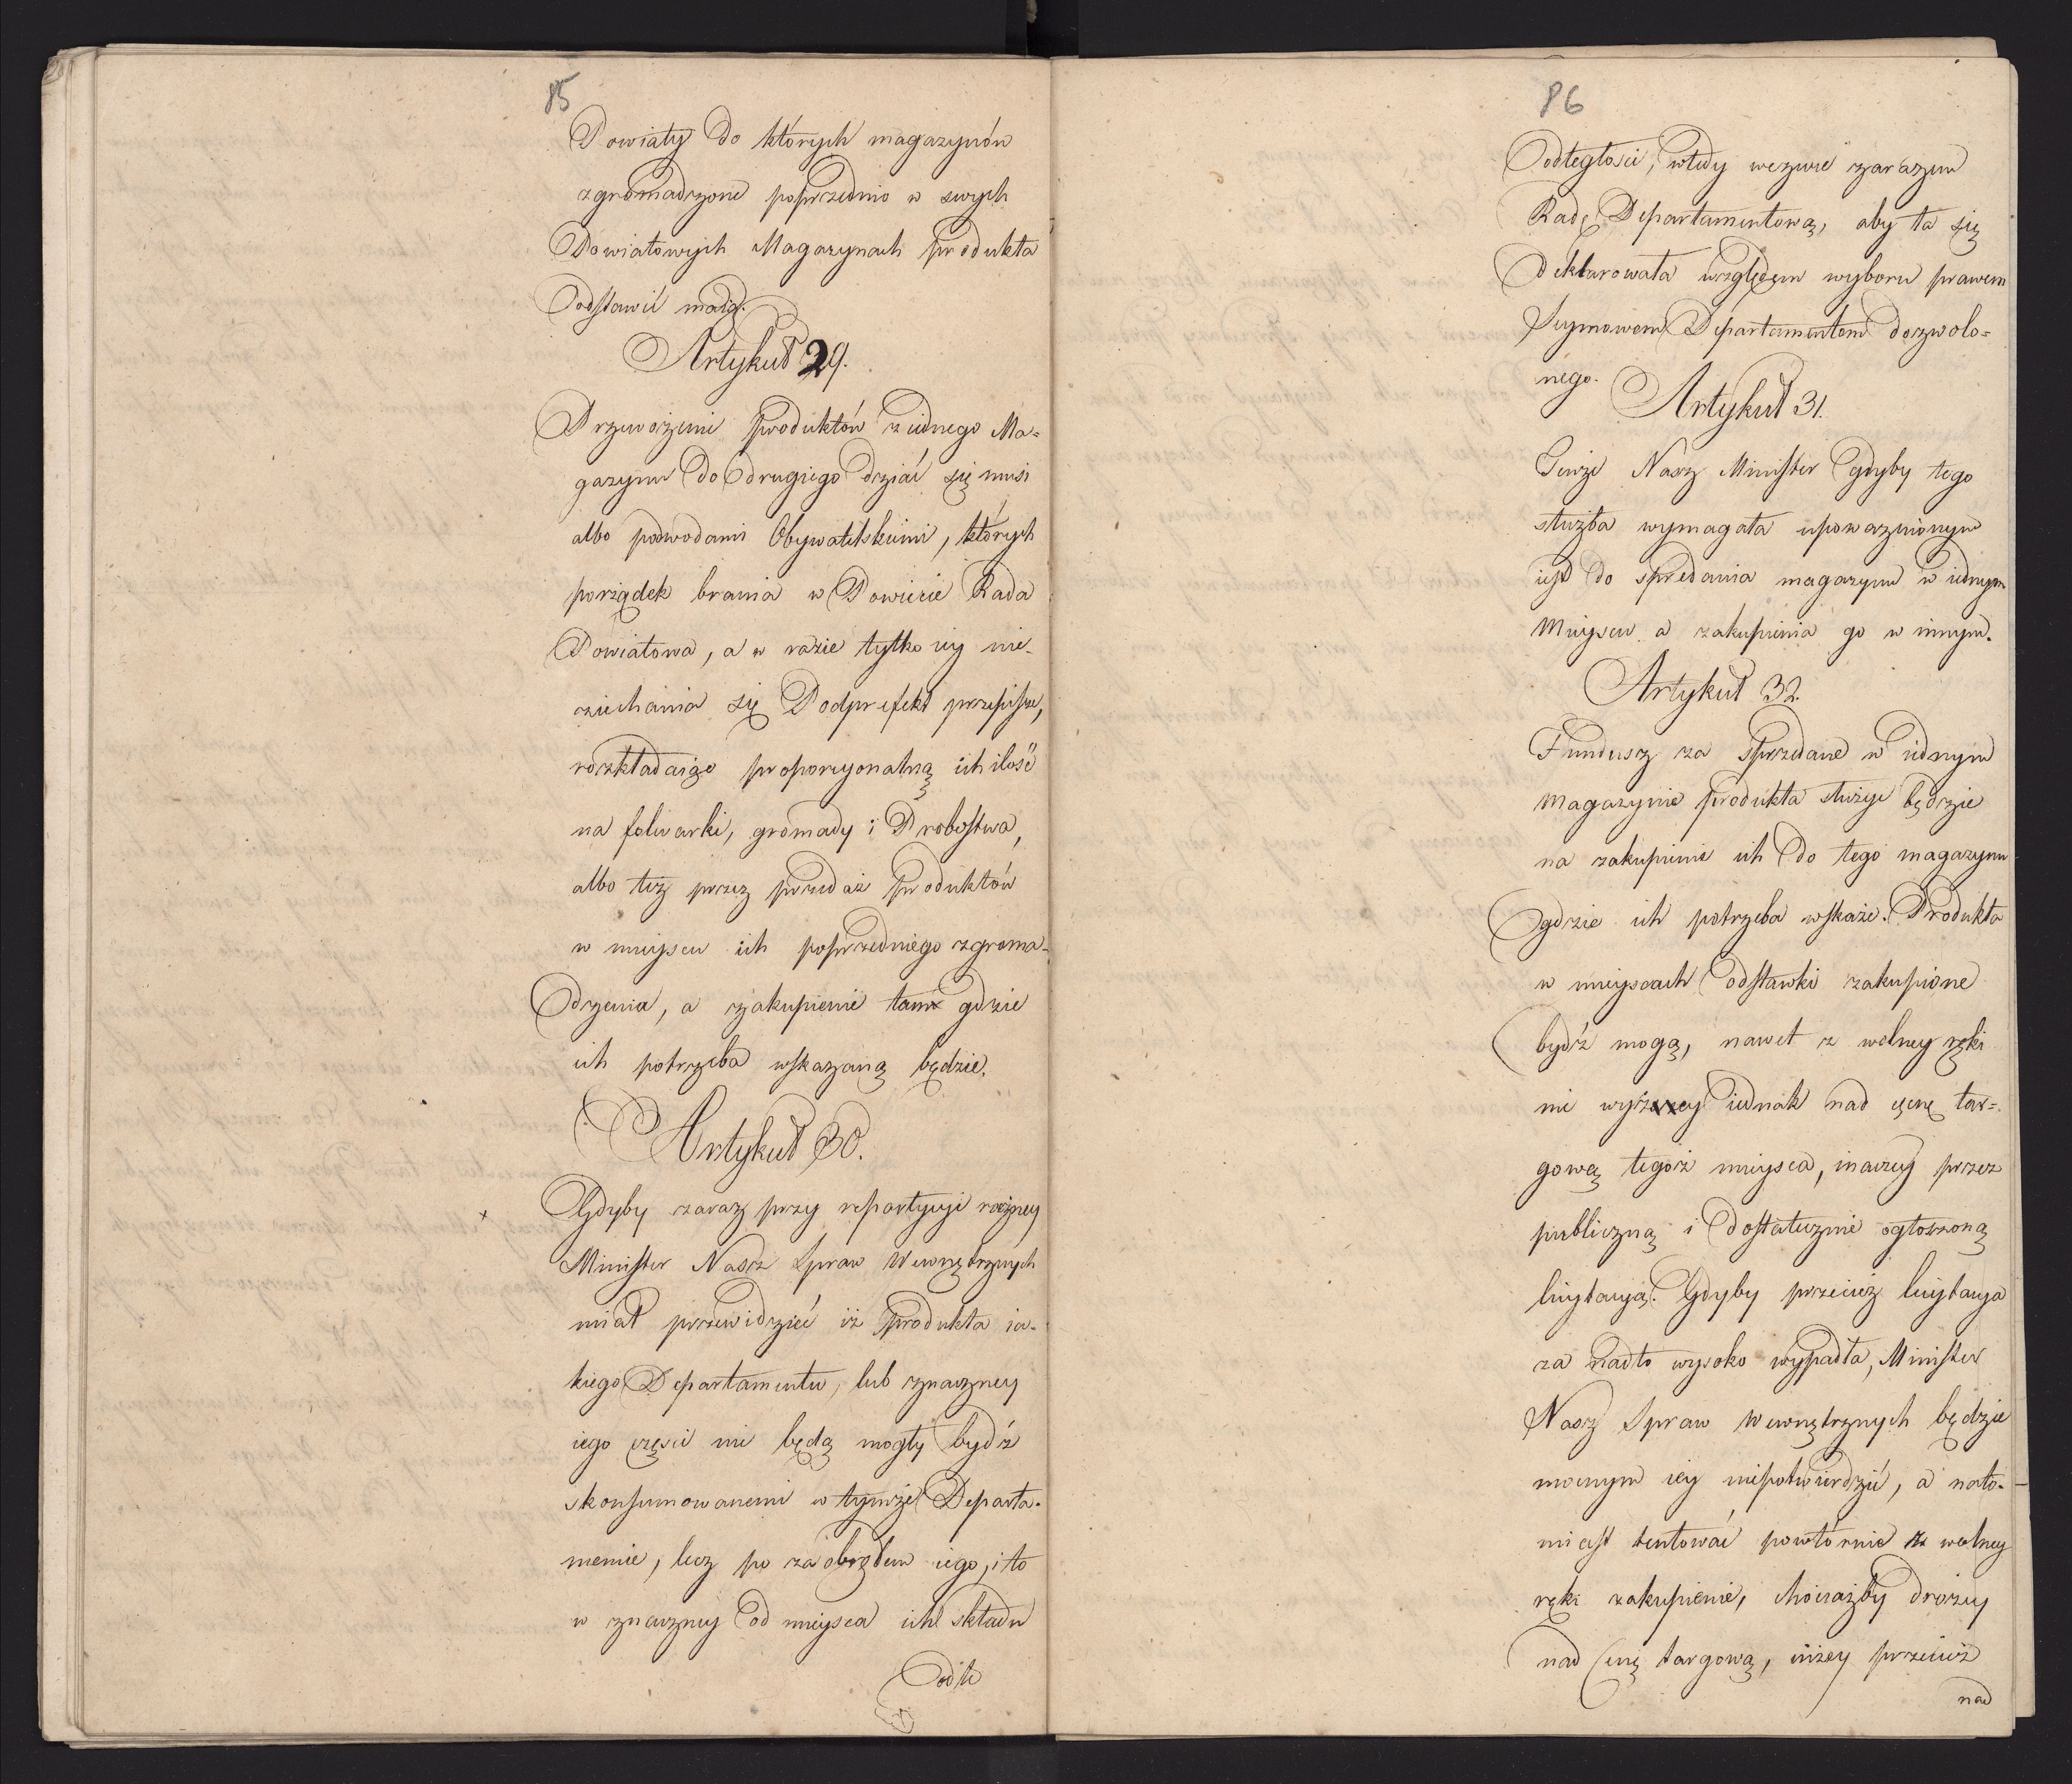 85
Powiaty do których magazynów
zgromadzone poprzednio w swych
Powiatowych Magazynach produkta
odstawić maią.
Artykuł 29.
Przewożenie produktów z iednego Ma=
gazynu do drugiego dziać się musi
albo podwodami Obywatelskiemi, których
porządek brania w Powiecie Rada
Powiatowa, a w razie tylko iey nie-
ziechania się Podprefekt przepisze,
rozkładaiąc proporcyonalną ich ilość
na folwarki, gromady i Probostwa,
albo też przez przedaż produktów
w mieyscu ich poprzedniego zgroma-
dzenia, a zakupienie tam gdzie
ich potrzeba wskazaną będzie.
Artykuł 30.
Gdyby zaraz przy repartycyi roczney
Minister Nasz Spraw Wewnętrznych
miał przewidzieć iż produkta ia-
kiego Departamentu, lub znaczney
iego części nie będą mogły bydź
skonsumowanemi w tymże Departa-
mencie, lecz po za obrębem iego, i to
w znaczney od mieysca ich składu
odle
86
odległości, wtedy wezwie zarazem
Radę Departamentową, aby ta się
deklarowała względem wyboru prawem
Seymowem Departamentom dozwolo=
nego.
Artykuł 31.
Tenże Nasz Minister gdyby tego
służba wymagała upoważnionym
iest do spredania magazynu w iednym
Mieyscu a zakupienia go w innym.
Artykuł 32.
Fundusz za sprzedane w iednym
magazynie produkta służyć będzie
na zakupienie ich do tego magazynu
gdzie ich potrzeba wskaże. Produkta
w mieyscach odstawki zakupione
bydź mogą, nawet z wolney ręki
nie wyżey iednak nad cenę tar=
gową tegoż mieysca, inaczey przez
publiczną i dostatecznie ogłoszoną
licytacyą. Gdyby przecież licytacya
za nadto wysoko wypadła, Minister
Nasz Spraw Wewnętrznych będzie
mocnym iey niepotwierdzić, a nato-
miast tentować powtórnie z wolney
ręki zakupienie, chociażby drożey
nad cenę targową, niżey przecież
nad